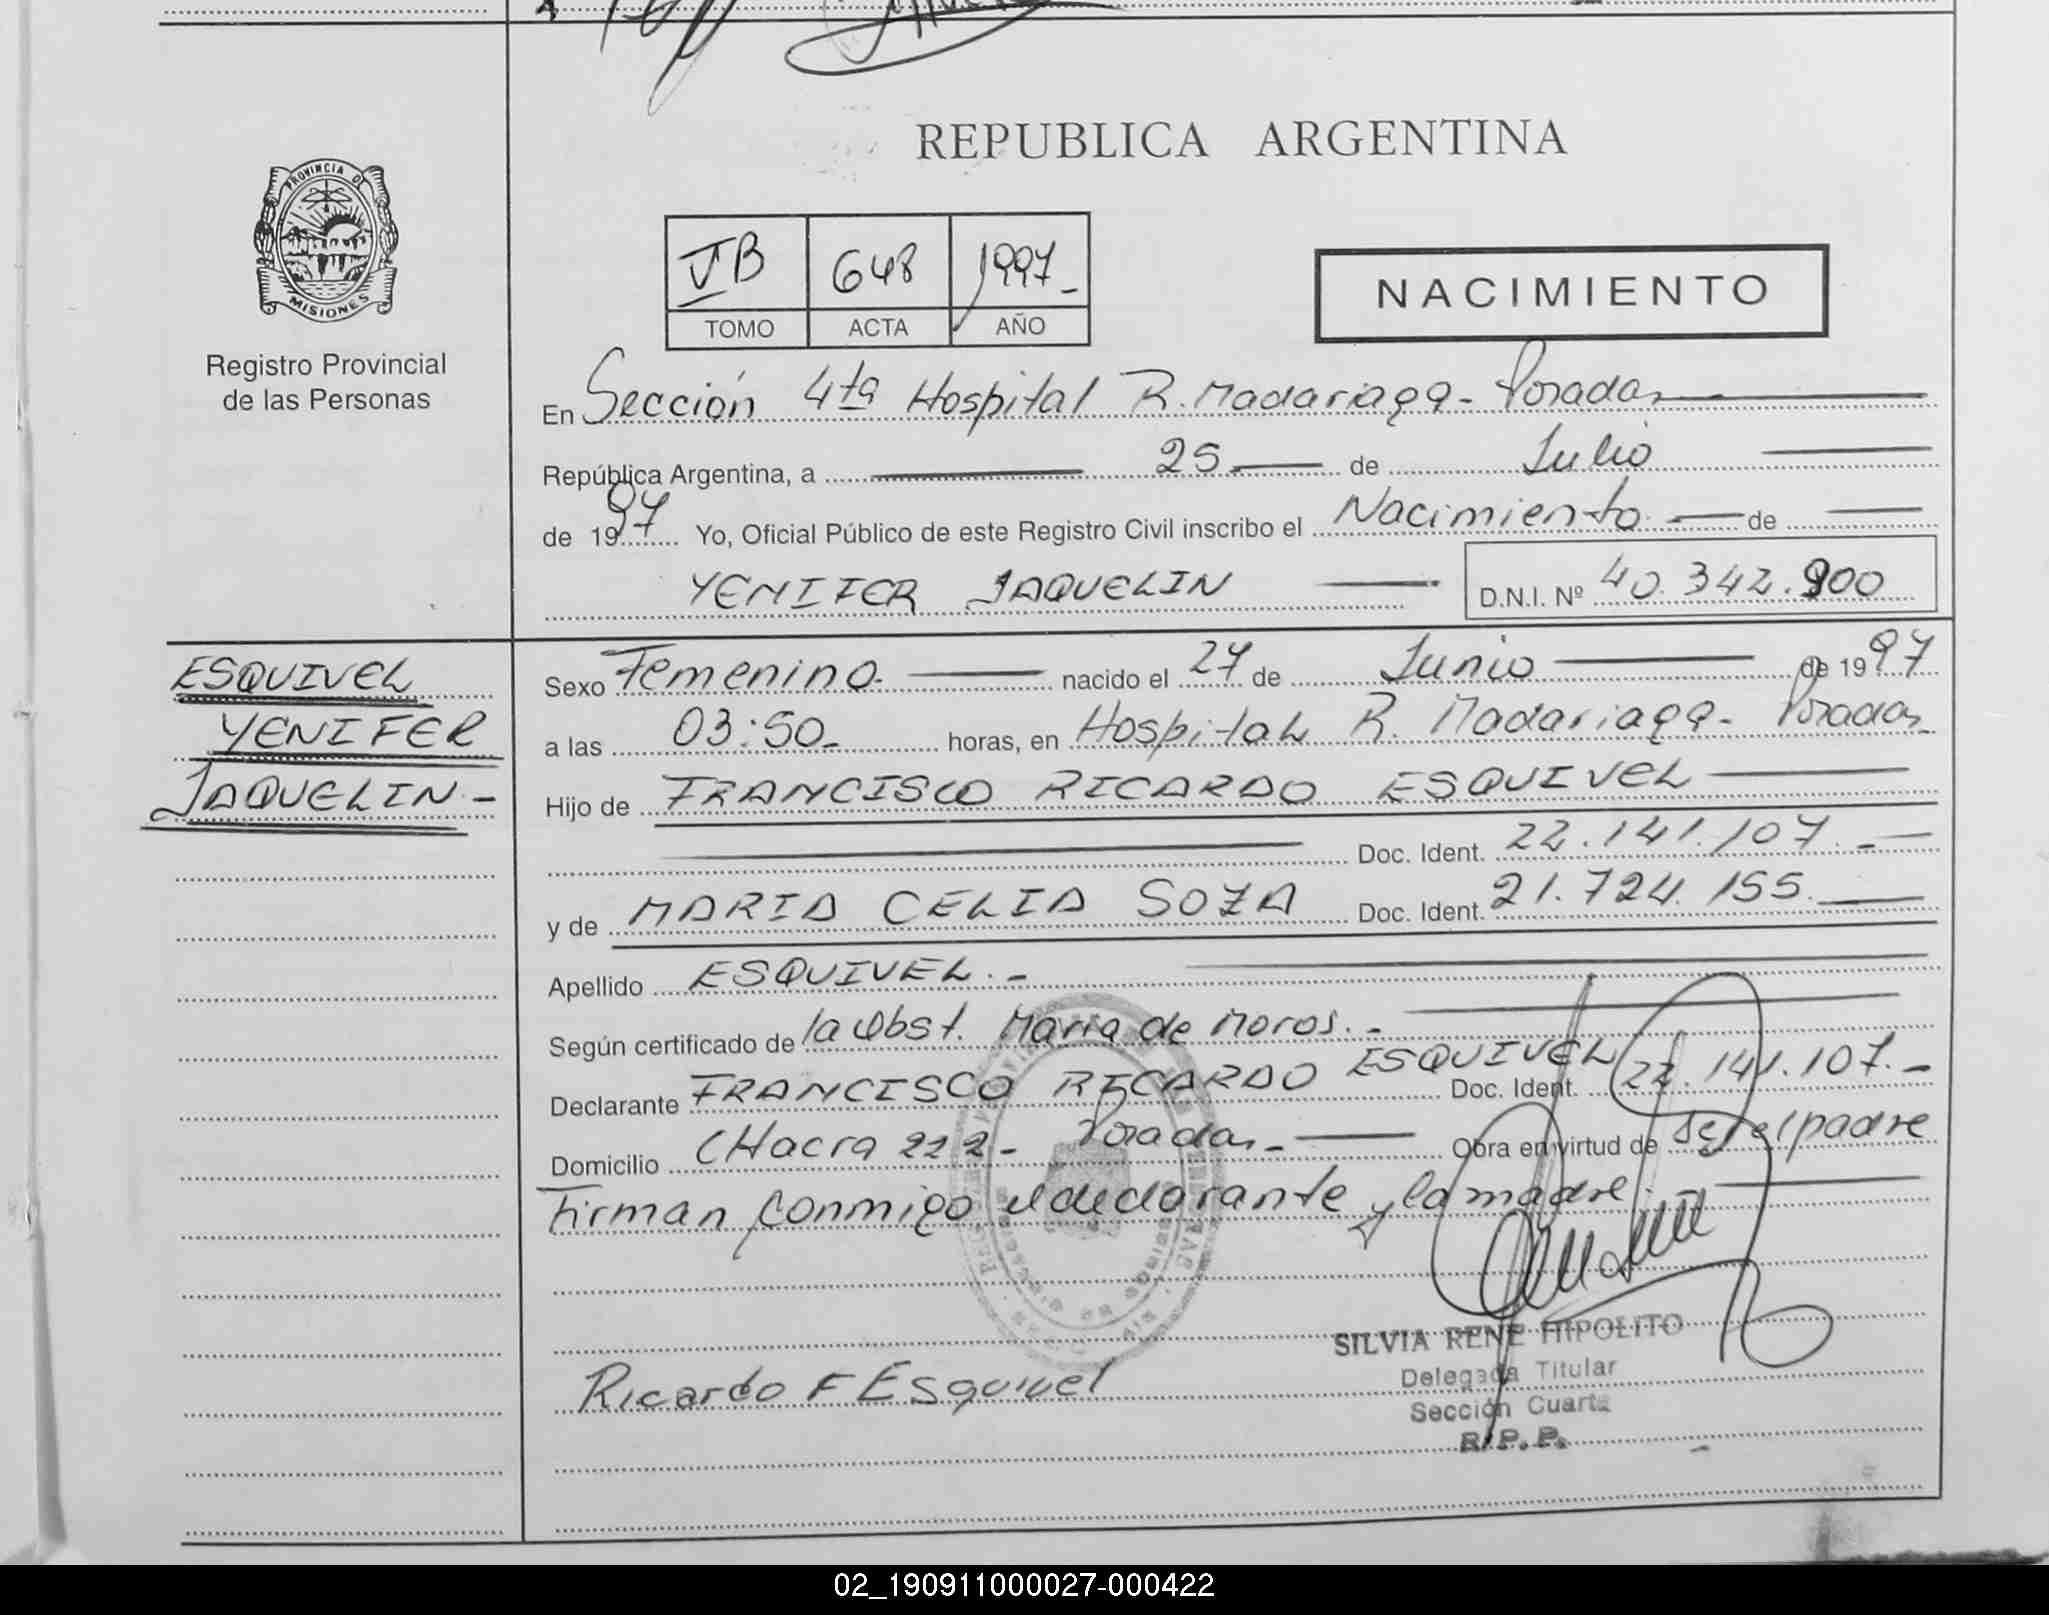 REPUBLICA ARGENTINA
PROVINCIA DE
MISIONES
Registro Provincial
de las Personas
VB 648 1997-
TOMO ACTA AÑO
NACIMIENTO
En Sección 4ta Hospital R. Madariaga - Posadas
República Argentina, a 25 de Julio
de 1997 Yo, Oficial Público de este Registro Civil inscribo el Nacimiento de
YENIFER JAQUELIN D.N.I. Nº 40.342.900
ESQUIVEL
YENIFER
JAQUELIN -
Sexo Femenino. nacido el 27 de Junio de 1997
a las 03:50 - horas, en Hospital R. Madariaga - Posadas
Hijo de FRANCISCO RICARDO ESQUIVEL
Doc. Ident. 22.141.107. -
y de MARIA CELIA SOZA Doc. Ident. 21.724.155.
Apellido ESQUIVEL. -
Según certificado de la Obst. Maria de Moros. -
Declarante FRANCISCO RICARDO ESQUIVEL Doc. Ident. 22.141.107. -
Domicilio CHacra 222 - Posadas - Obra en virtud de Ser el padre
Firman conmigo el declarante y la madre. -
SILVIA RENE HIPOLITO
Delegada Titular
Sección Cuarta
R.P.P.
Ricardo F Esquivel
02_190911000027-000422